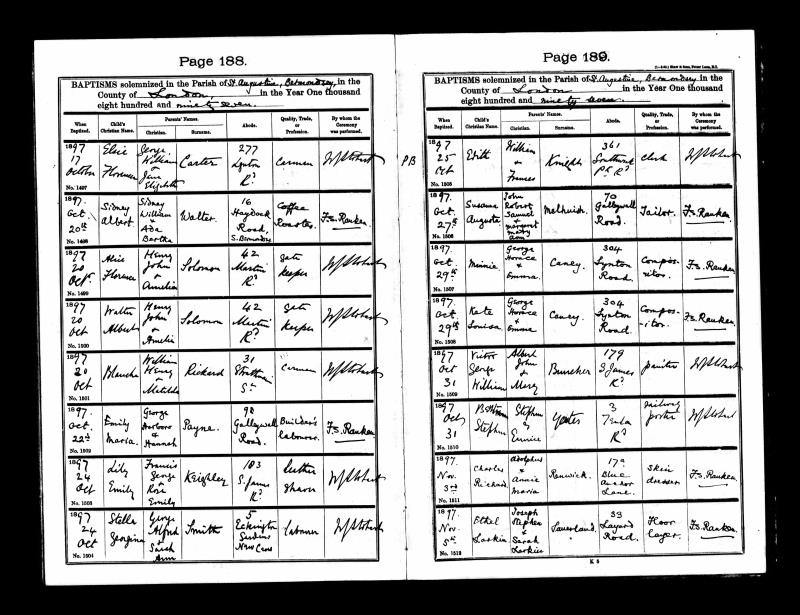 Page 188.
BAPTISMS solemnized in the Parish of St. Augustine, Bermondsey, in the
County of London, in the Year One thousand
eight hundred and ninety seven.
When Baptized.
Child's Christian Name.
Parents' Names.
Christian.
Surname.
Abode.
Quality, Trade, or Profession.
By whom the Ceremony was performed.
1897
17
October
No. 1497
Elsie
Florence
George
William
&
Jane
Elizabeth
Carter
277
Lynton
Rd
Carman
1897.
Oct.
20th
No. 1498
Sidney
Albert.
Sidney
William
&
Ada
Bertha
Walter.
16
Haydock
Road,
S. Bermondsey
Coffee
Roaster.
F.S. Ranken.
1897
20
Octr.
No. 1499
Alice
Florence
Henry
John
&
Amelia
Solomon
42
Martin
Rd
Gate
Keeper
1897
20
Oct
No. 1500
Walter
Albert
Henry
John
&
Amelia
Solomon
42
Martin
Rd
Gate
Keeper
1897
20
Oct
No. 1501
Blanche
William
Henry
&
Matilda
Rickard
31
St
Carman
1897.
Oct.
22nd
No. 1502
Emily
Maria.
George
&
Hannah
Payne.
90
Galleywall
Road.
Builder's
labourer.
F.S. Ranken.
1897
24
Oct
No. 1503
Lily
Emily
Francis
George
&
Rose
Emily
Keighley
183
S. James
Rd
Leather
Shaver
1897
24
Oct
No. 1504
Stella
Georgina
George
Alfred
&
Sarah
Ann
Smith
5
Eckington
Gardens
New Cross
Labourer
Page 189.
BAPTISMS solemnized in the Parish of St. Augustine, Bermondsey in the
County of London in the Year One thousand
eight hundred and ninety seven.
When Baptized.
Child's Christian Name.
Parents' Names.
Christian.
Surname.
Abode.
Quality, Trade, or Profession.
By whom the Ceremony was performed.
PB
1897
25
Oct
No. 1505
Edith
William
&
Frances
Knight
361
Southwark
Pk Rd
Clerk
1897.
Oct.
27th
No. 1506
Susanna
Augusta
John
Robert
Samuel
&
Margaret
Mary
Ann
Melhuish.
70
Galleywall
Road.
Tailor.
F.S. Ranken.
1897.
Oct.
29th
No. 1507
Minnie
George
Horace
&
Emma.
Caney.
304
Lynton
Road.
Compos-
itor.
F.S. Ranken.
1897.
Oct.
29th
No. 1508
Kate
Louisa
George
Horace
&
Emma
Caney.
304
Lynton
Road.
Compos-
itor.
F.S. Ranken.
1897
Oct
31
No. 1509
Victor
George
William
Albert
John
&
Mary
179
S James
Rd
painter
1897
Oct
31
No. 1510
Stephen
Stephen
&
Eunice
Yeates
3
Rd
railway
porter
1897.
Nov.
3rd
No. 1511
Charles
Richard
Adolphus
&
Annie
Maria
Renwick.
17a
Blue
Anchor
Lane.
Skin
dresser
F.S. Ranken.
1897.
Nov.
5th
No. 1512
Ethel
Larkin
Joseph
Stephen
&
Sarah
Larkin
Sauerland.
33
Layard
Road.
Floor
layer.
F.S. Ranken.
K 5